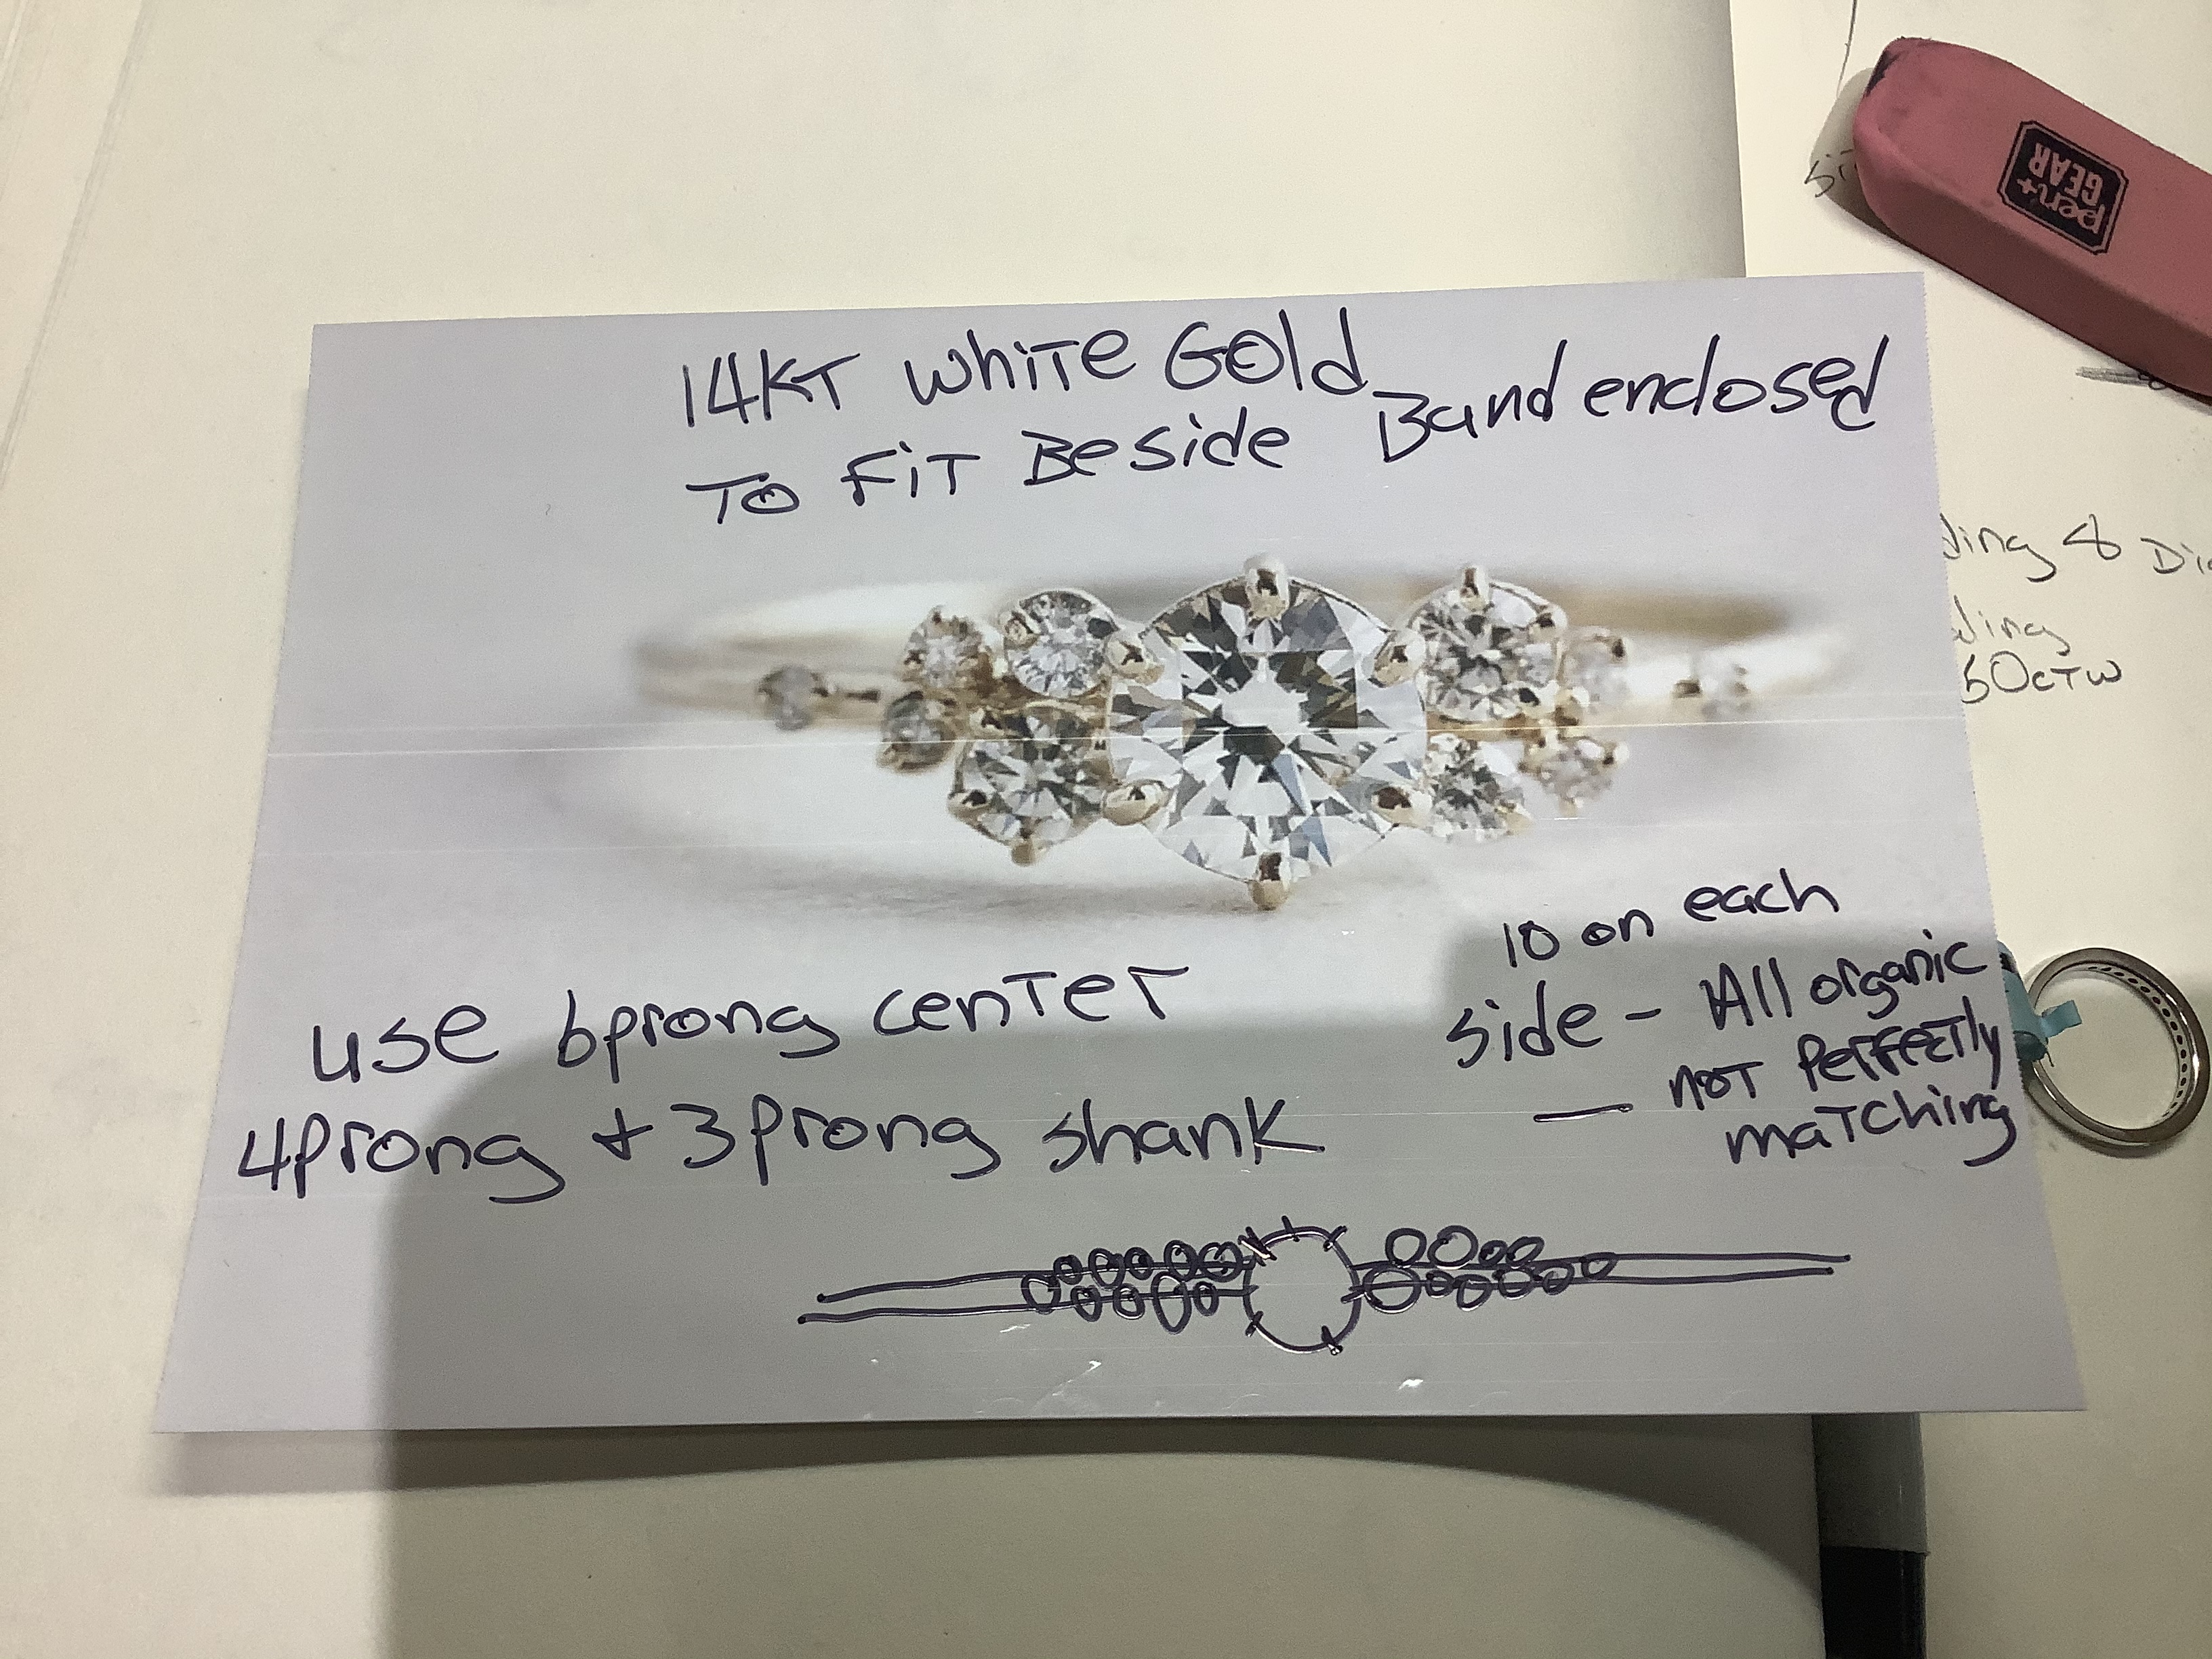 14KT White Gold
To Fit Beside Band enclosed
use 6prong center
4Prong + 3Prong shank
10 on each
side - All organic
— not Perfectly
matching
pen+
GEAR
50CTW